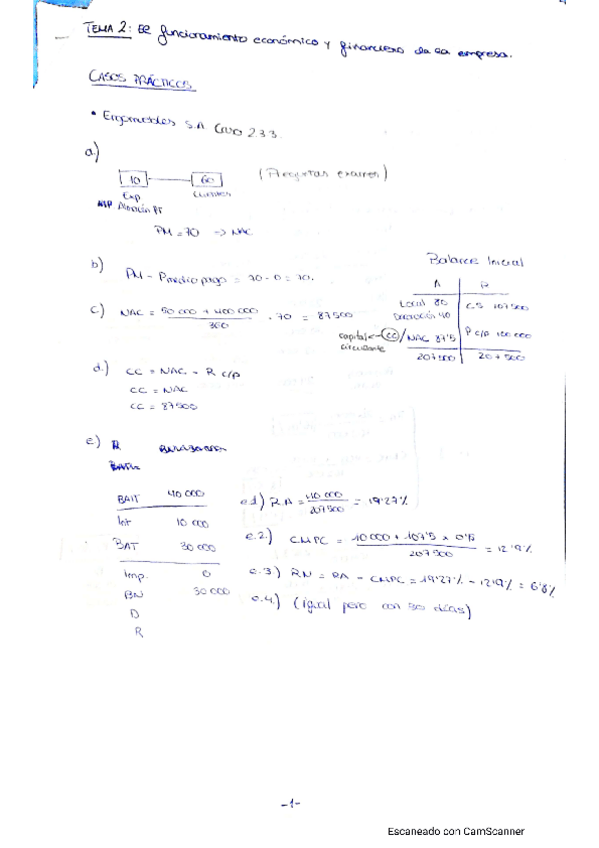 TEMA 2: El funcionamiento económico y financiero de la empresa.
CASOS PRÁCTICOS
• Ergometales S.A. Caso 2.3.3.
a)
10 60
Exp Clientes
MP Almacén PT
(Preguntas examen)
PM = 70 → NAC
b) PM - Pmedio pago = 70 - 0 = 70.
c) NAC = 50 000 + 400 000 / 360 · 70 = 87500
Balance Inicial
A P
Local 80 CS 107500
40
capital ← CC/NAC 87'5 P c/p 100 000
circulante
207500 207500
d) CC = NAC - R c/p
CC = NAC
CC = 87500
e) R
BAIT 40 000
Int 10 000
BAT 30 000
Imp. 0
BN 30 000
D
R
e.1) RA = 40 000 / 207500 = 19'27%
e.2) CMPC = 10 000 + 107'5 x 0'15 / 207 500 = 12'9%
e.3) RN = RA - CMPC = 19'27% - 12'9% = 6'8%
e.4.) (igual pero con 30 días)
-1-
Escaneado con CamScanner